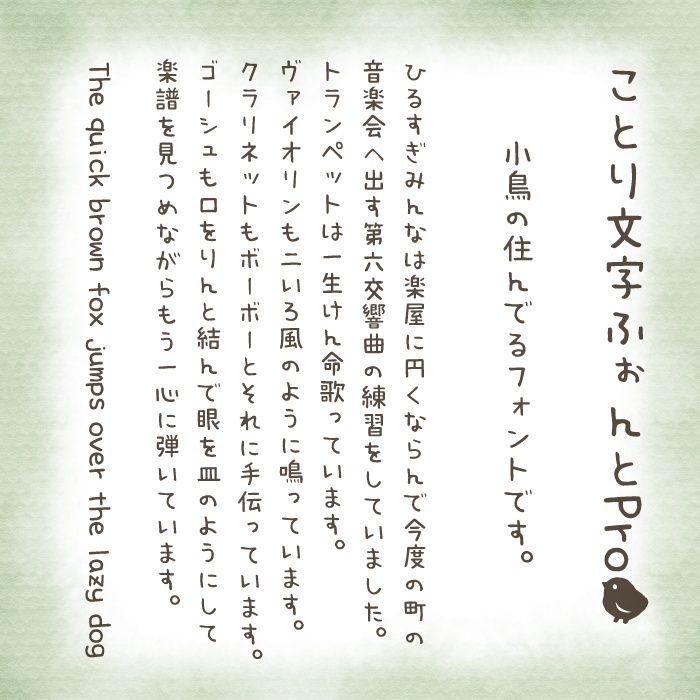 ことり文字ふぉんとPro
小鳥の住んでるフォントです。
ひるすぎみんなは楽屋に円くならんで今度の町の
音楽会へ出す第六交響曲の練習をしていました。
トランペットは一生けん命歌っています。
ヴァイオリンも二いろ風のように鳴っています。
クラリネットもボーボーとそれに手伝っています。
ゴーシュも口をりんと結んで眼を皿のようにして
楽譜を見つめながらもう一心に弾いています。
The quick brown fox jumps over the lazy dog